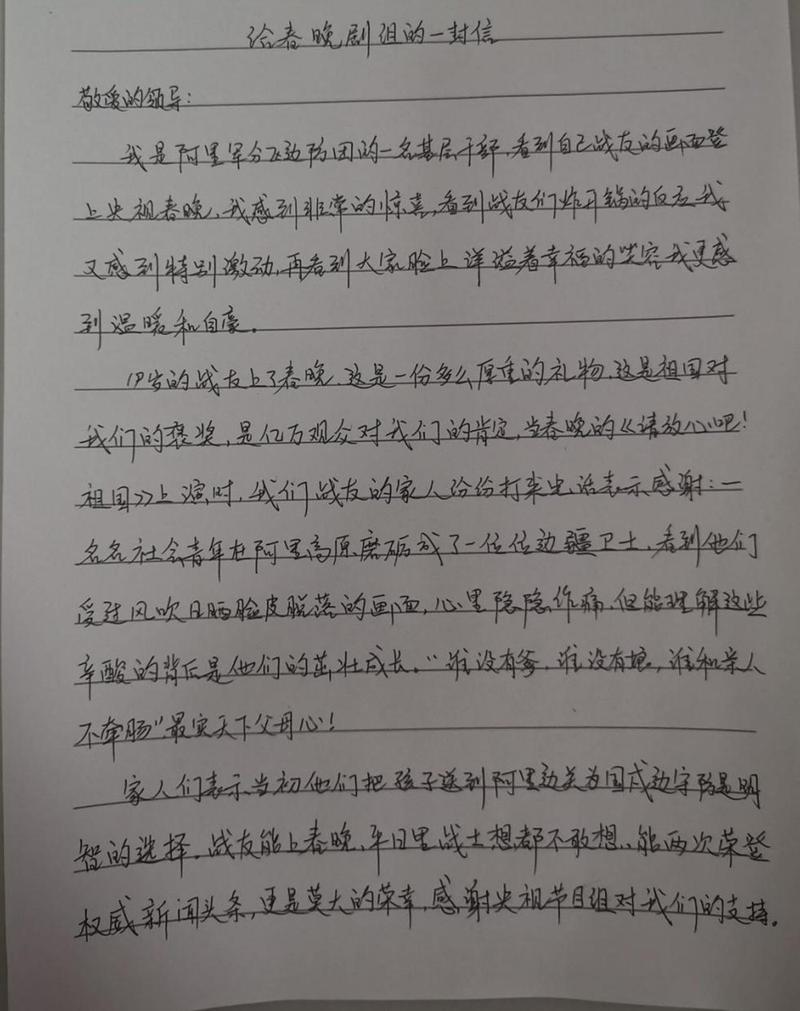 给春晚剧组的一封信
敬爱的领导：
我是阿里军分区边防团的一名基层干部，看到自己战友的画面登
上央视春晚，我感到非常的惊喜，看到战友们炸开锅的
我
又感到特别激动，再看到大家脸上洋溢着幸福的笑容我更感
到温暖和自豪。
19岁的战友上了春晚，这是一份多么厚重的礼物，这是祖国对
我们的褒奖，是亿万观众对我们的肯定，当春晚的《请放心吧！
祖国》上演时，我们战友的家人纷纷打来电话表示感谢：一
名名社会青年在阿里高原磨砺成了一位位边疆卫士，看到他们
受过风吹日晒脸皮脱落的画面，心里隐隐作痛，但能理解这些
辛酸的背后是他们的茁壮成长。“谁没有爹，谁没有娘，谁和亲人
不牵肠”最实天下父母心！
家人们表示当初他们把孩子送到阿里边关为国戍边守防是明
智的选择。战友能上春晚，平日里战士想都不敢想，能两次荣登
权威新闻头条，更是莫大的荣幸，感谢央视节目组对我们的支持。